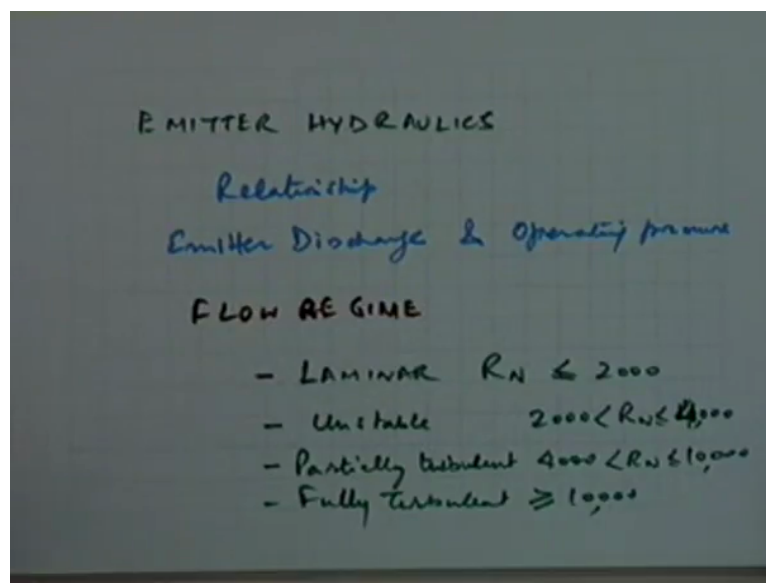 EMITTER HYDRAULICS
Relationship
Emitter Discharge & Operating pressure
FLOW REGIME
- LAMINAR RN ≤ 2000
- Unstable 2000 < RN ≤ 4,000
- Partially turbulent 4000 < RN ≤ 10,000
- Fully turbulent ≥ 10,000